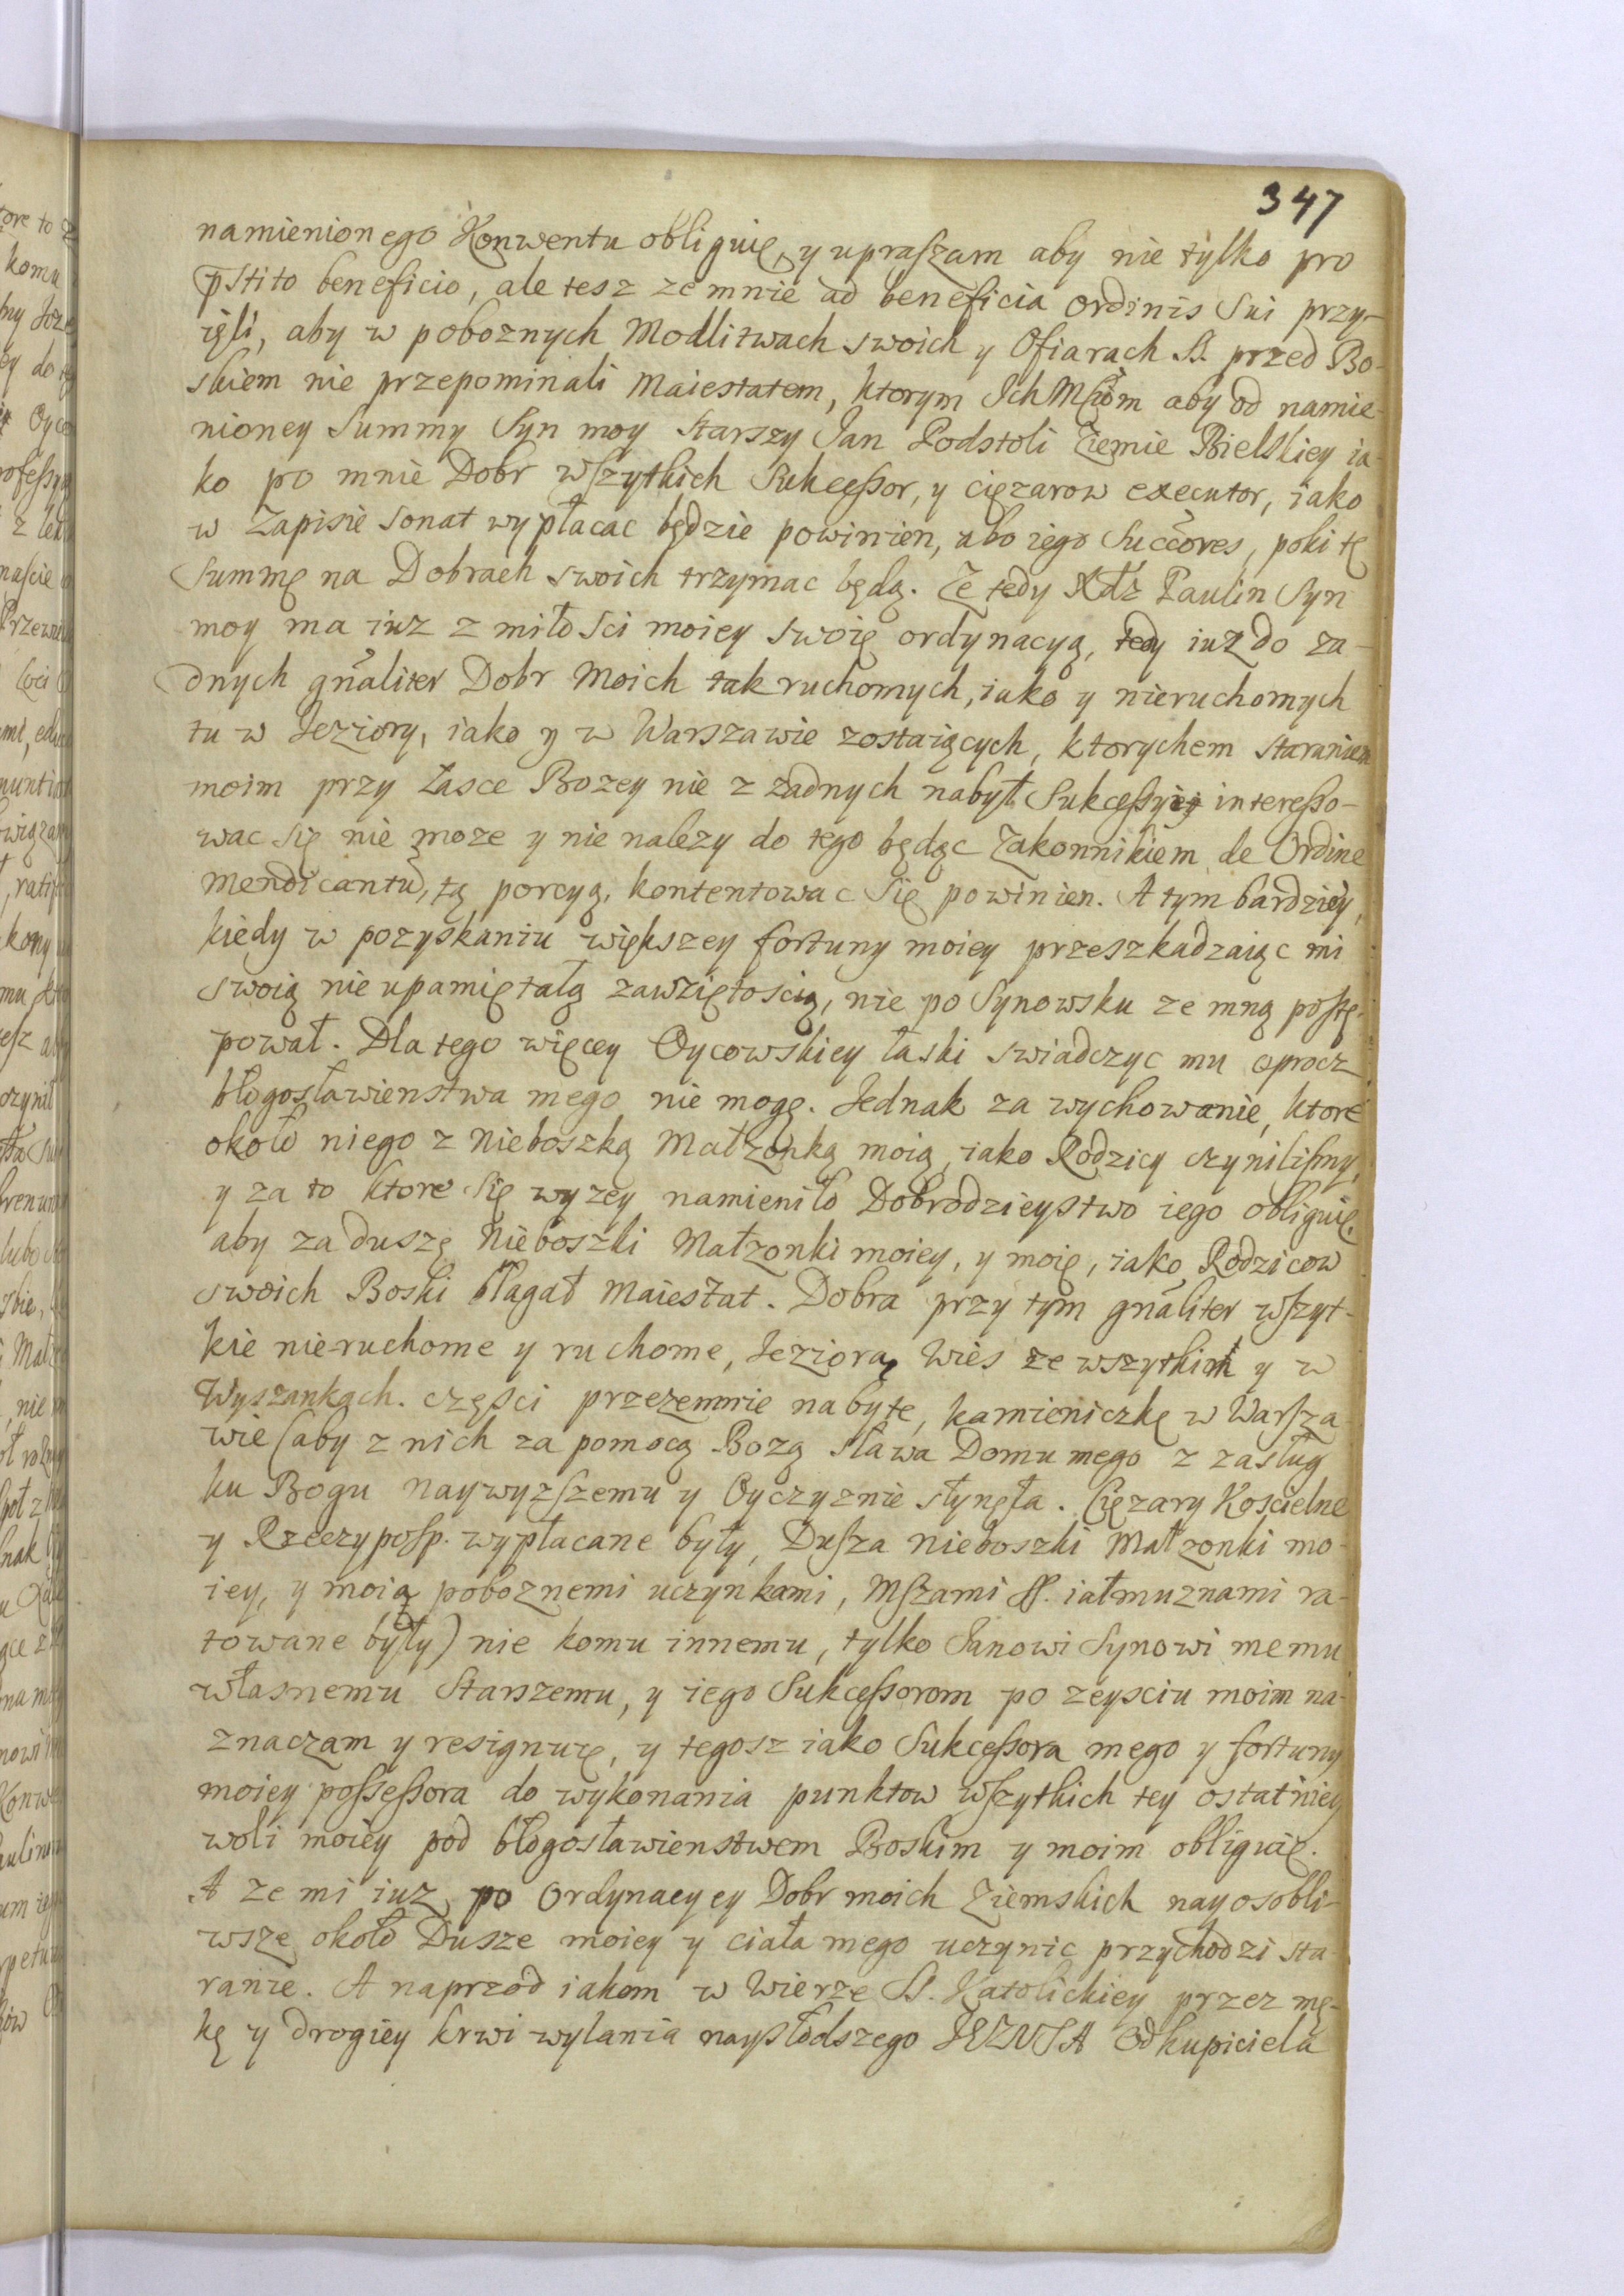 347
namienionego Konwentu obliguię, y upraszam aby nie tylko pro
p̄stito beneficio, ale tesz ze mnie ad beneficia ordinis sui przy-
ięli, aby w poboznych Modlitwach swoich y Ofiarach S. przed Bo-
skiem nie przepominali Maiestatem, ktorym Ich Mciom aby od namie-
nioney Summy Syn moy starszy Jan Podstoli Ziemie Bielskiey ia-
ko po mnie Dobr wszytkich Sukcessor, y cięzarow executor, iako
w Zapisie sonat wypłacac będzie powinien, abo iego Succõres, poki tę
Summę na Dobrach swoich trzymac będą. Ze tedy Xdz Paulin Syn
moy ma iuz z miłosci moiey swoię ordynacyą, tedy iuz do za-
dnych gñaliter Dobr Moich tak ruchomych, iako y nieruchomych
tu w Jeziory, iako y w Warszawie zostaiących, ktorychem staraniem
moim przy Łasce Bozey nie z zadnych nabył Sukcessyiey interesso-
wac się nie moze y nie nalezy do tego będąc Zakonnikiem de Ordine
Mendicantũ, tą porcyą, kontentowac się powinien. A tym bardziey,
kiedy w pozyskaniu większey fortuny moiey przeszkadzaiąc mi
swoią nieupamiętałą zawziętoscią, nie po Synowsku ze mną postę-
pował. Dla tego więcey Oycowskiey łaski swiadczyc mu oprocz
błogosławienstwa mego nie mogę. Jednak za wychowanie, ktore
około niego z Nieboszką Małzonką moią, iako Rodzicy czynilismy,
y za to ktore się wyzey namieniło Dobrodzieystwo iego obliguię,
aby za duszę Nieboszki Małzonki moiey, y moię, iako Rodzicow
swoich Boski błagał Maiestat. Dobra przy tym gñaliter wszyt-
kie nieruchome y ruchome, Jeziorą Wies ze wszytkim y w
Wyszankach. częsci przezemnie nabyte, kamieniczkę w Warsza-
wie (aby z nich za pomocą Bozą sława Domu mego z zasług
ku Bogu naywyzszemu y Oyczyznie słynęła. Cięzary Koscielne
y Rzeczyposp. wypłacane były, Dusza nieboszki Małzonki mo-
iey, y moia poboznemi uczynkami, Mszami SS. iałmuznami ra-
towane były) nie komu innemu, tylko Janowi Synowi memu
własnemu Starszemu, y iego Sukcessorom po zeysciu moim na-
znaczam y resignuię, y tegosz iako Sukcessora mego y fortuny
moiey possessora do wykonania punktow wszytkich tey ostatniey
woli moiey pod błogosławienstwem Boskim y moim obliguię.
A ze mi iuz po Ordynacyey Dobr moich Ziemskich nayosobli-
wsze około Dusze moiey y ciała mego uczynic przychodzi sta-
ranie. A naprzod iakom w Wierze S. Katolickiey przez mę-
kę y drogiey krwi wylania naysłodszego JEZUSA Odkupiciela